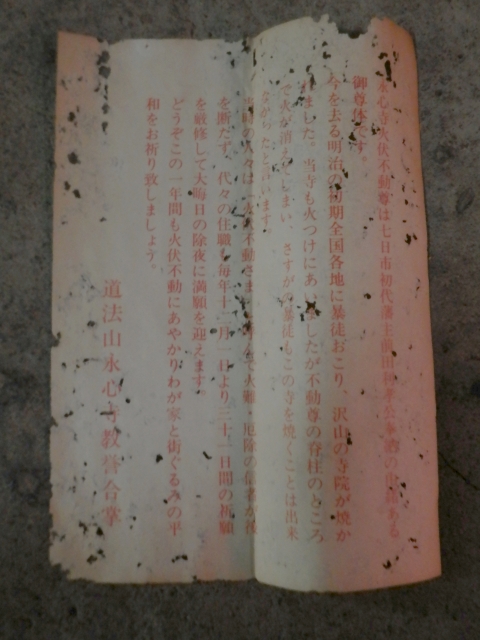 永心寺火伏不動尊は七日市初代藩主前田利孝公の由緒ある
御尊体です。
今を去る明治の初期全国各地に暴徒おこり、沢山の寺院が焼か
れました。当寺も火つけにあいましたが不動尊の脊柱のところ
で火が消えてしまい、さすがの暴徒もこの寺を焼くことは出来
なかったといいます。
の人々は 火伏不動さま 火難、厄除の信者が後
を断たず、代々の住職も毎年十二月一日より三十一日間の祈願
を厳修して大晦日の除夜に満願を迎えます。
どうぞこの一年間も火伏不動にあやかりわが家と街ぐるみの平
和をお祈り致しましょう。
道法山永心寺教誉合掌